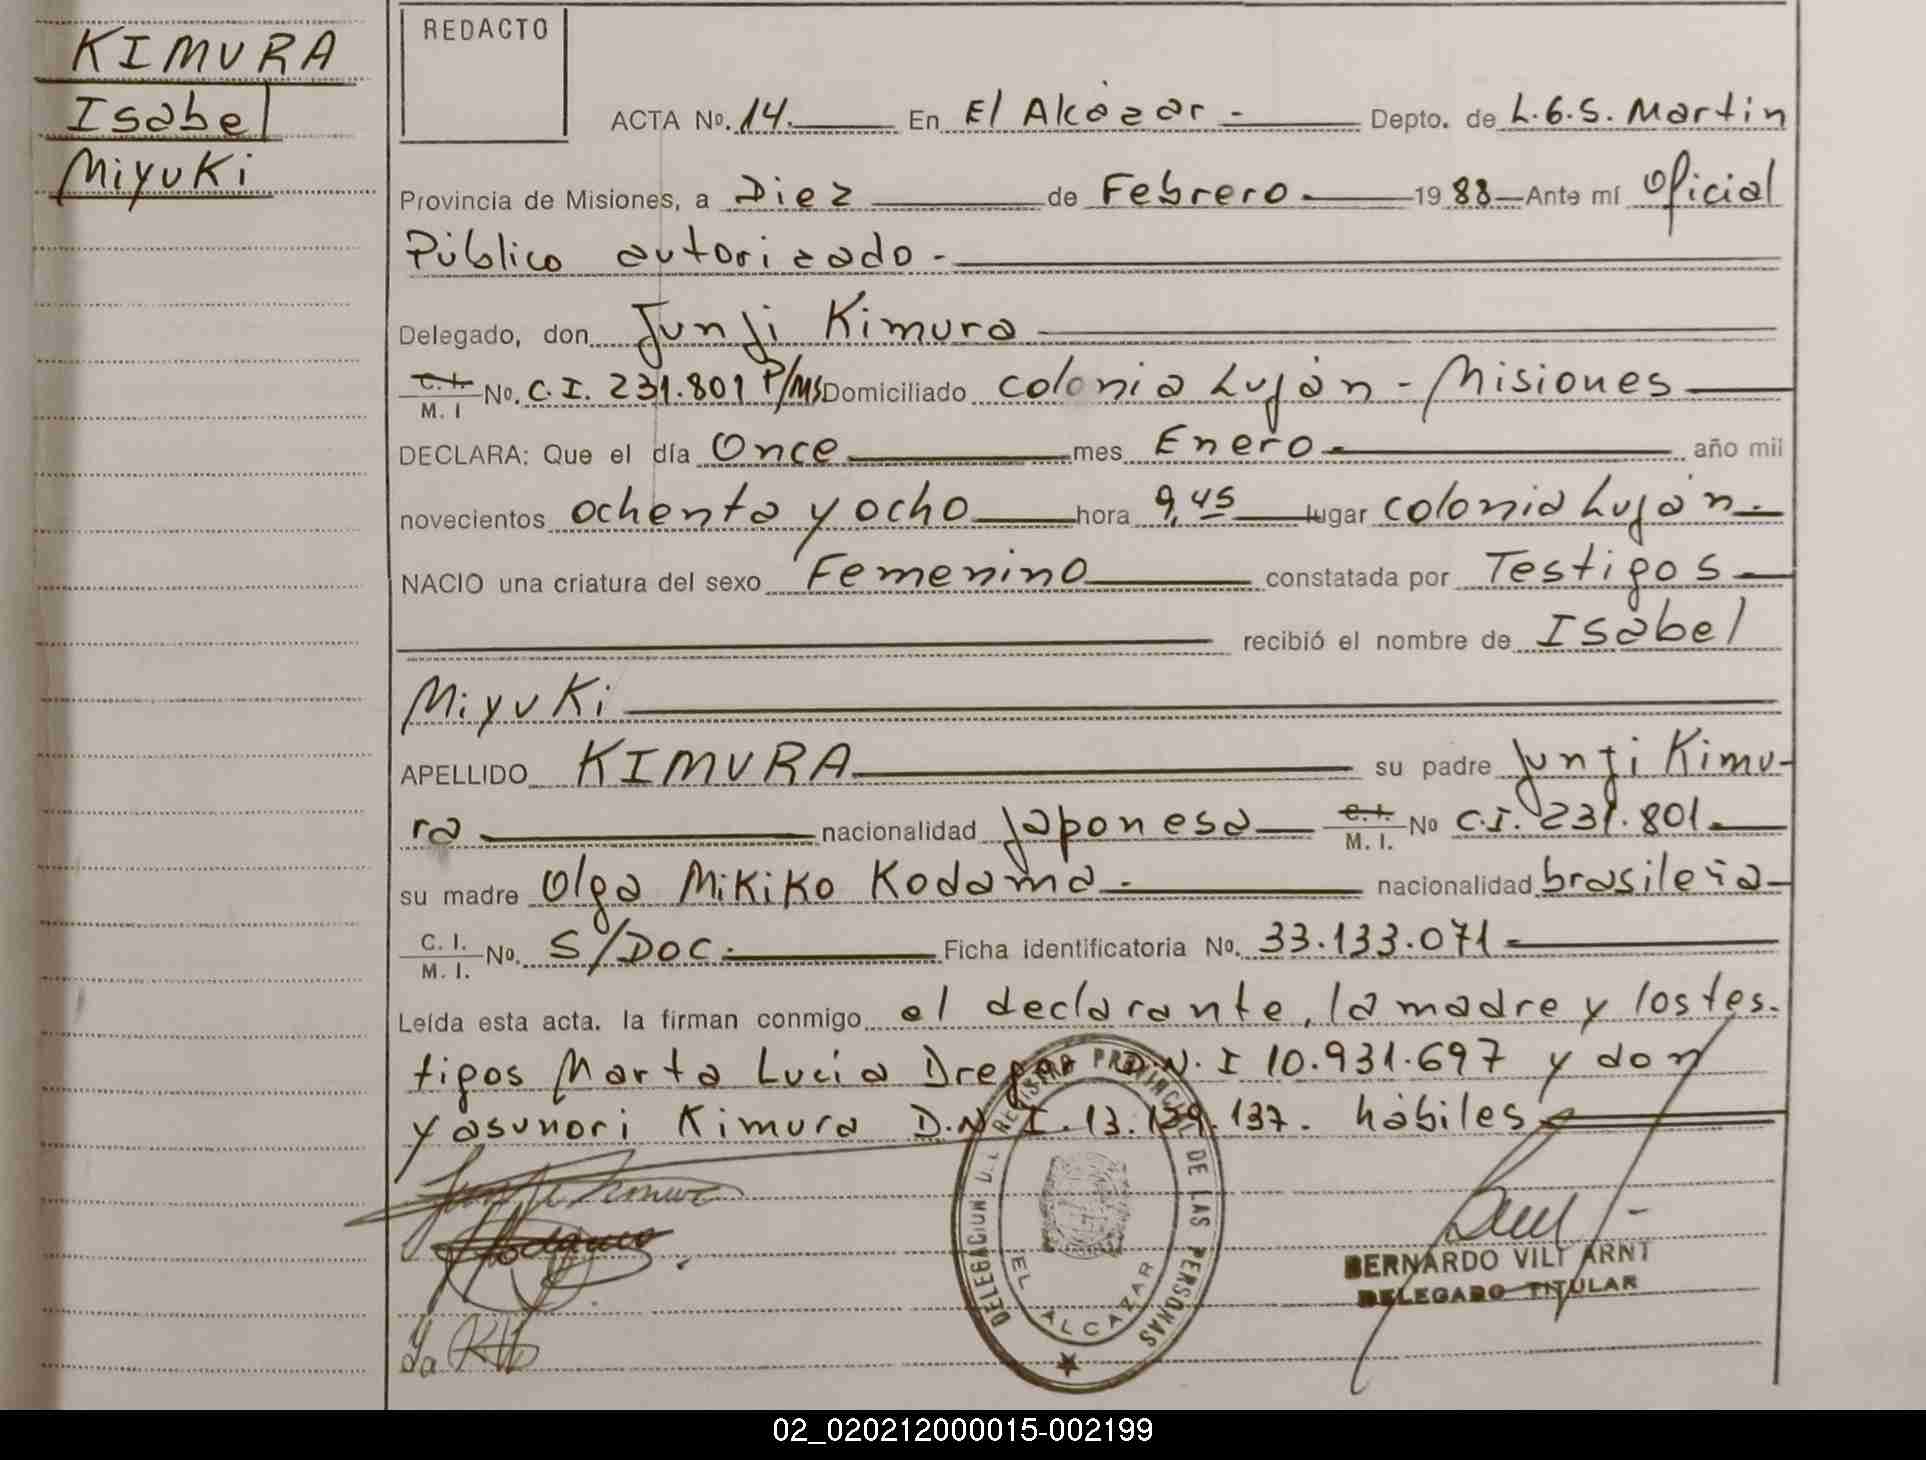 KIMURA
Isabel
Miyuki
REDACTO
ACTA Nº. 14. En El Alcázar - Depto. de L.G.S. Martin
Provincia de Misiones, a Diez de Febrero 1988 Ante mí Oficial
Público autorizado -
Delegado, don Junji Kimura
C.I. M. I Nº. C.I. 231.801 P/MS Domiciliado colonia Luján - Misiones
DECLARA: Que el día Once mes Enero año mil
novecientos ochenta y ocho hora 9,45 lugar colonia Luján.
NACIO una criatura del sexo Femenino constatada por Testigos
recibió el nombre de Isabel
Miyuki
APELLIDO KIMURA su padre Junji Kimu-
ra nacionalidad Japonesa C.I. M. I. Nº C.I. 231.801.
su madre Olga Mikiko Kodama - nacionalidad brasileña
C. I. M. I. Nº. S/DOC. Ficha identificatoria Nº. 33.133.071
Leída esta acta. la firman conmigo el declarante, la madre y los tes.
tigos Marta Lucia Dreger D.N.I 10.931.697 y don
yasunori Kimura D.N.I. 13.159.137. hábiles
DELEGACION DEL REGISTRO PROVINCIAL DE LAS PERSONAS
EL ALCAZAR
BERNARDO VILT ARNT
DELEGADO TITULAR
02_020212000015-002199